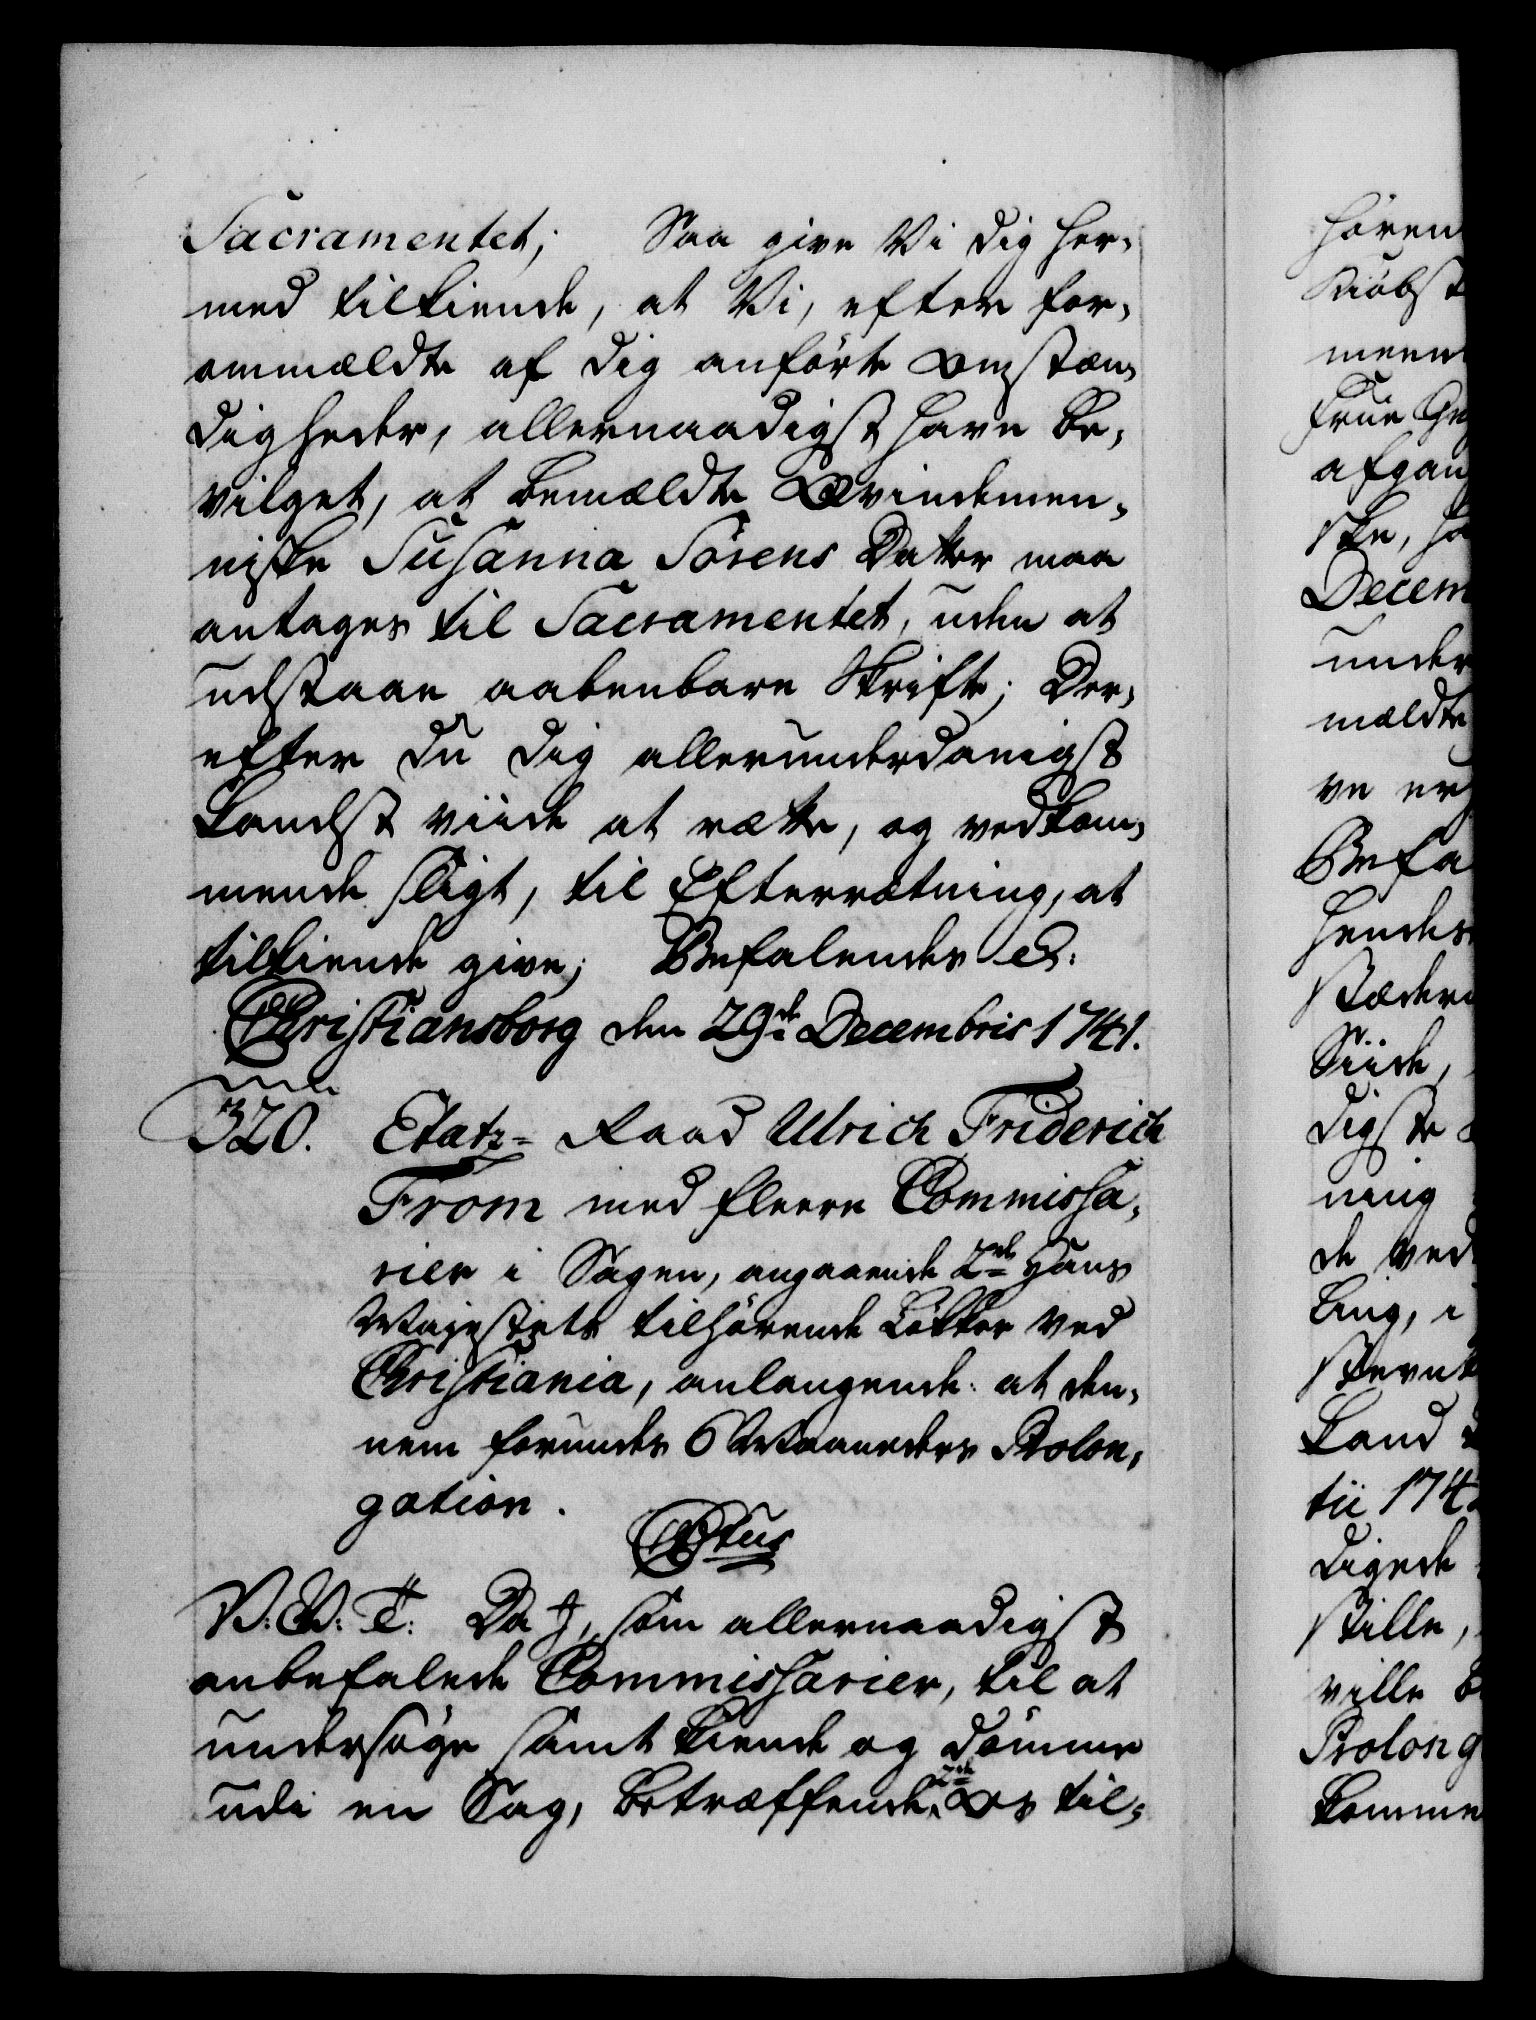 Sacramentet; Saa give Vi dig her-
med tilkiende, at Vi, efter for-
ommældte af dig anførte Omstæn-
digheder, allernaadigst have be-
vilget, at bemældte Qvindemen-
niske Susanna Sørens Datter maa
antages til Sacramentet, uden at
udstaae aabenbare Skrifte; Der-
efter du dig allerunderdanigst
kandst viide at rætte, og vedkom-
mende sligt, til Efterrætning, at
tilkiende give; Befalendes &.
Christiansborg den 29de Decembris 1741.
320. Etatz- Raad Ulrich Friderich
From med fleere Commissa-
rier i Sagen, angaaende 2de Hans
Majestets tilhørende Løkker ved
Christiania, anlangende: at den-
nem forundes 6 Maaneders Prolon-
gation.
C6tus
V: G: T: Da I, som allernaadigst
anbefalede Commissarier, til at
undersøge samt kiende og dømme
udi en Sag, betræffende 2de Os til-
hören
Kiøbst
meen
Frue Gr
afgan
ske, ha
Decem
under
mældte
ve er
Befa
hendes
stæder
Siide,
digste
ning
de ved
ling, i
stævn
Land
tii 174
digede
stille,
ville b
Prolong
komme